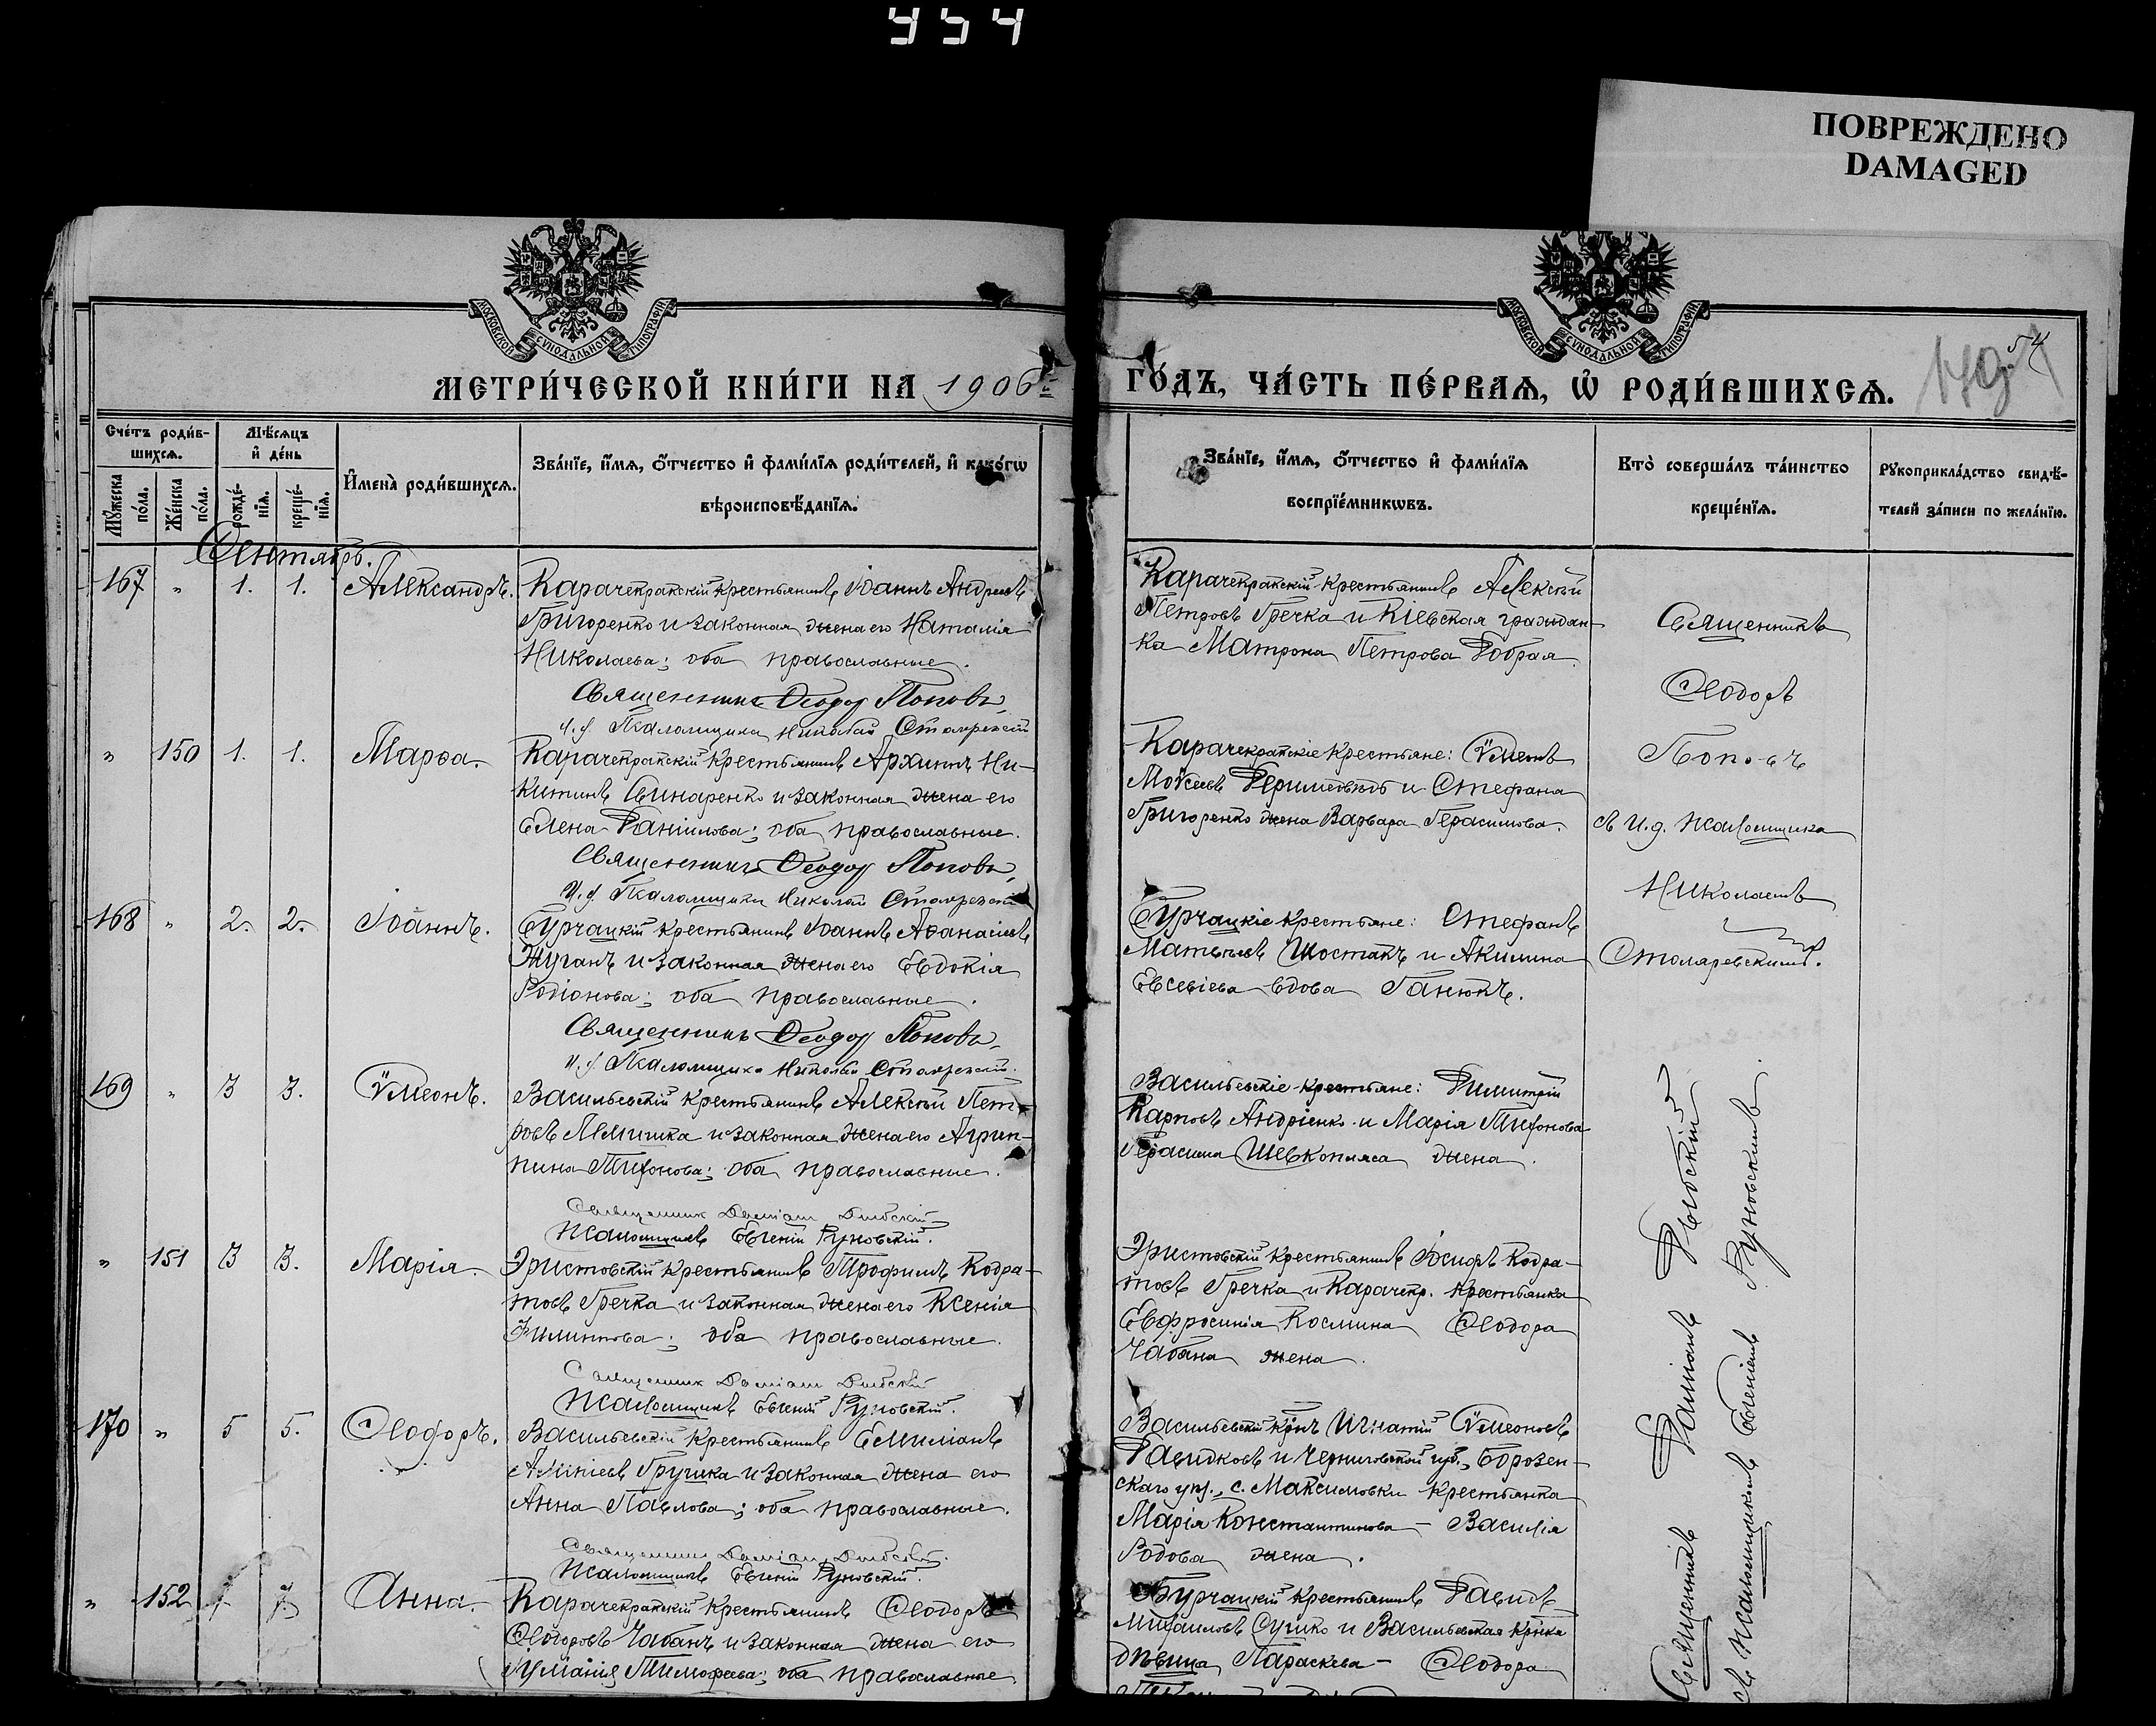 954
ПОВРЕЖДЕНО
DAMAGED
МОСКОВСКОЙ СУНОДАЛЬНОЙ ТИПОГРАФІИ
МОСКОВСКОЙ СУНОДАЛЬНОЙ ТИПОГРАФІИ
54
МЕТРИ́ЧЕСКОЙ КНИ́ГИ НА 1906й
ГО́ДЪ, ЧА́СТЬ ПЕ́РВАѦ, Ѡ҆ РОДИ́ВШИХСѦ.
Сче́тъ роди́в-
шихсѧ.
Мѣ́сѧцъ
и҆ де́нь
Мꙋ́жеска
по́ла.
Же́нска
по́ла.
рожде́-
нїѧ.
креще́-
нїѧ.
И҆мена̀ роди́вшихсѧ.
Зва́нїе, и҆́мѧ, ѻ҆́тчество и҆ фами́лїѧ роди́телей, и҆ како́гѡ
вѣроисповѣ́данїѧ.
Зва́нїе, и҆́мѧ, ѻ҆́тчество и҆ фами́лїѧ
воспрїе́мникѡвъ.
Кто̀ соверша́лъ та́инство
креще́нїѧ.
Рꙋкоприкла́дство свидѣ́-
телей за́писи по жела́нїю.
Сентябрь.
167 " 1. 1. Александръ.
Карачекракскій крестьянинъ Іоаннъ Андреевъ
Григоренко и законная жена его Наталія
Николаева; оба православные.
Священникъ Ѳеодоръ Поповъ
И.д. Псаломщика Николай Столяревскій
Карачекракскій крестьянинъ Алексѣй
Петровъ Гречка и Кіевская граждан-
ка Матрона Петрова Добрая.
Священникъ
Ѳеодоръ
Поповъ
съ И.д. псаломщика
Николаемъ
Столяревскимъ.
" 150 1. 1. Марѳа.
Карачекракскій крестьянинъ Архиппъ Ни-
китинъ Винаренко и законная жена его
Елена Даніилова; оба православные.
Священникъ Ѳеодоръ Поповъ
И.д. Псаломщика Николай Столяревскій
Карачекракскіе крестьяне: Сѵмеонъ
Моѵсеевъ и Стефана
Григоренко жена Варвара Герасимова.
168 " 2. 2. Іоаннъ.
Бурчацкій крестьянинъ Іоаннъ Аѳанасіевъ
Жуганъ и законная жена его Евдокія
Родіонова; оба православные.
Священникъ Ѳеодоръ Поповъ
И.д. Псаломщика Николай Столяревскій
Бурчацкіе крестьяне: Стефанъ
Матвѣевъ Шостакъ и Акилина
Евсевіева вдова Ганюкъ.
169 " 3 3. Сѵмеонъ.
Васильевскій крестьянинъ Алексѣй Пет-
ровъ Лемишка и законная жена его Агрип-
пина Тихонова; оба православные.
Священникъ Даміанъ Дыбскій
Псаломщикъ Евгеній Руновскій.
Васильевскіе крестьяне: Димитрій
Карповъ Андріенко и Марія Тихонова
Герасима Шевкопляса жена.
" 151 3 3. Марія.
Эристовскій крестьянинъ Трофимъ Кодра-
товъ Гречка и законная жена его Ксенія
Филиппова; оба православные.
Священникъ Даміанъ Дыбскій
Псаломщикъ Евгеній Руновскій.
Эристовскій крестьянинъ Іосифъ Кодра-
товъ Гречка и Карачекр. крестьянка
Евфросинія Космина Ѳеодора
Чабана жена.
170 " 5 5. Ѳеодоръ.
Васильевскій крестьянинъ Емиліанъ
Грушка и законная жена его
Анна Павлова; оба православные.
Священникъ Даміанъ Дыбскій.
Псаломщикъ Евгеній Руновскій.
Васильевскій кр-нъ Игнатій Сѵмеоновъ
Давидковъ и Черниговской губ., Борзен-
скаго уѣз., с. Максимовки крестьянка
Марія Константинова – Василія
Родова жена.
" 152 7 7. Анна.
Карачекракскій крестьянинъ Ѳеодоръ
Ѳеодоровъ Чабанъ и законная жена его
Іуліанія Тимофеева; оба православные
Бурчацкій крестьянинъ Давидъ
Михаиловъ Сушко и Васильевская кр-нка
дѣвица Параскева – Ѳеодора
Священникъ Даміанъ Дыбскій
съ Псаломщикомъ Евгеніемъ Руновскимъ